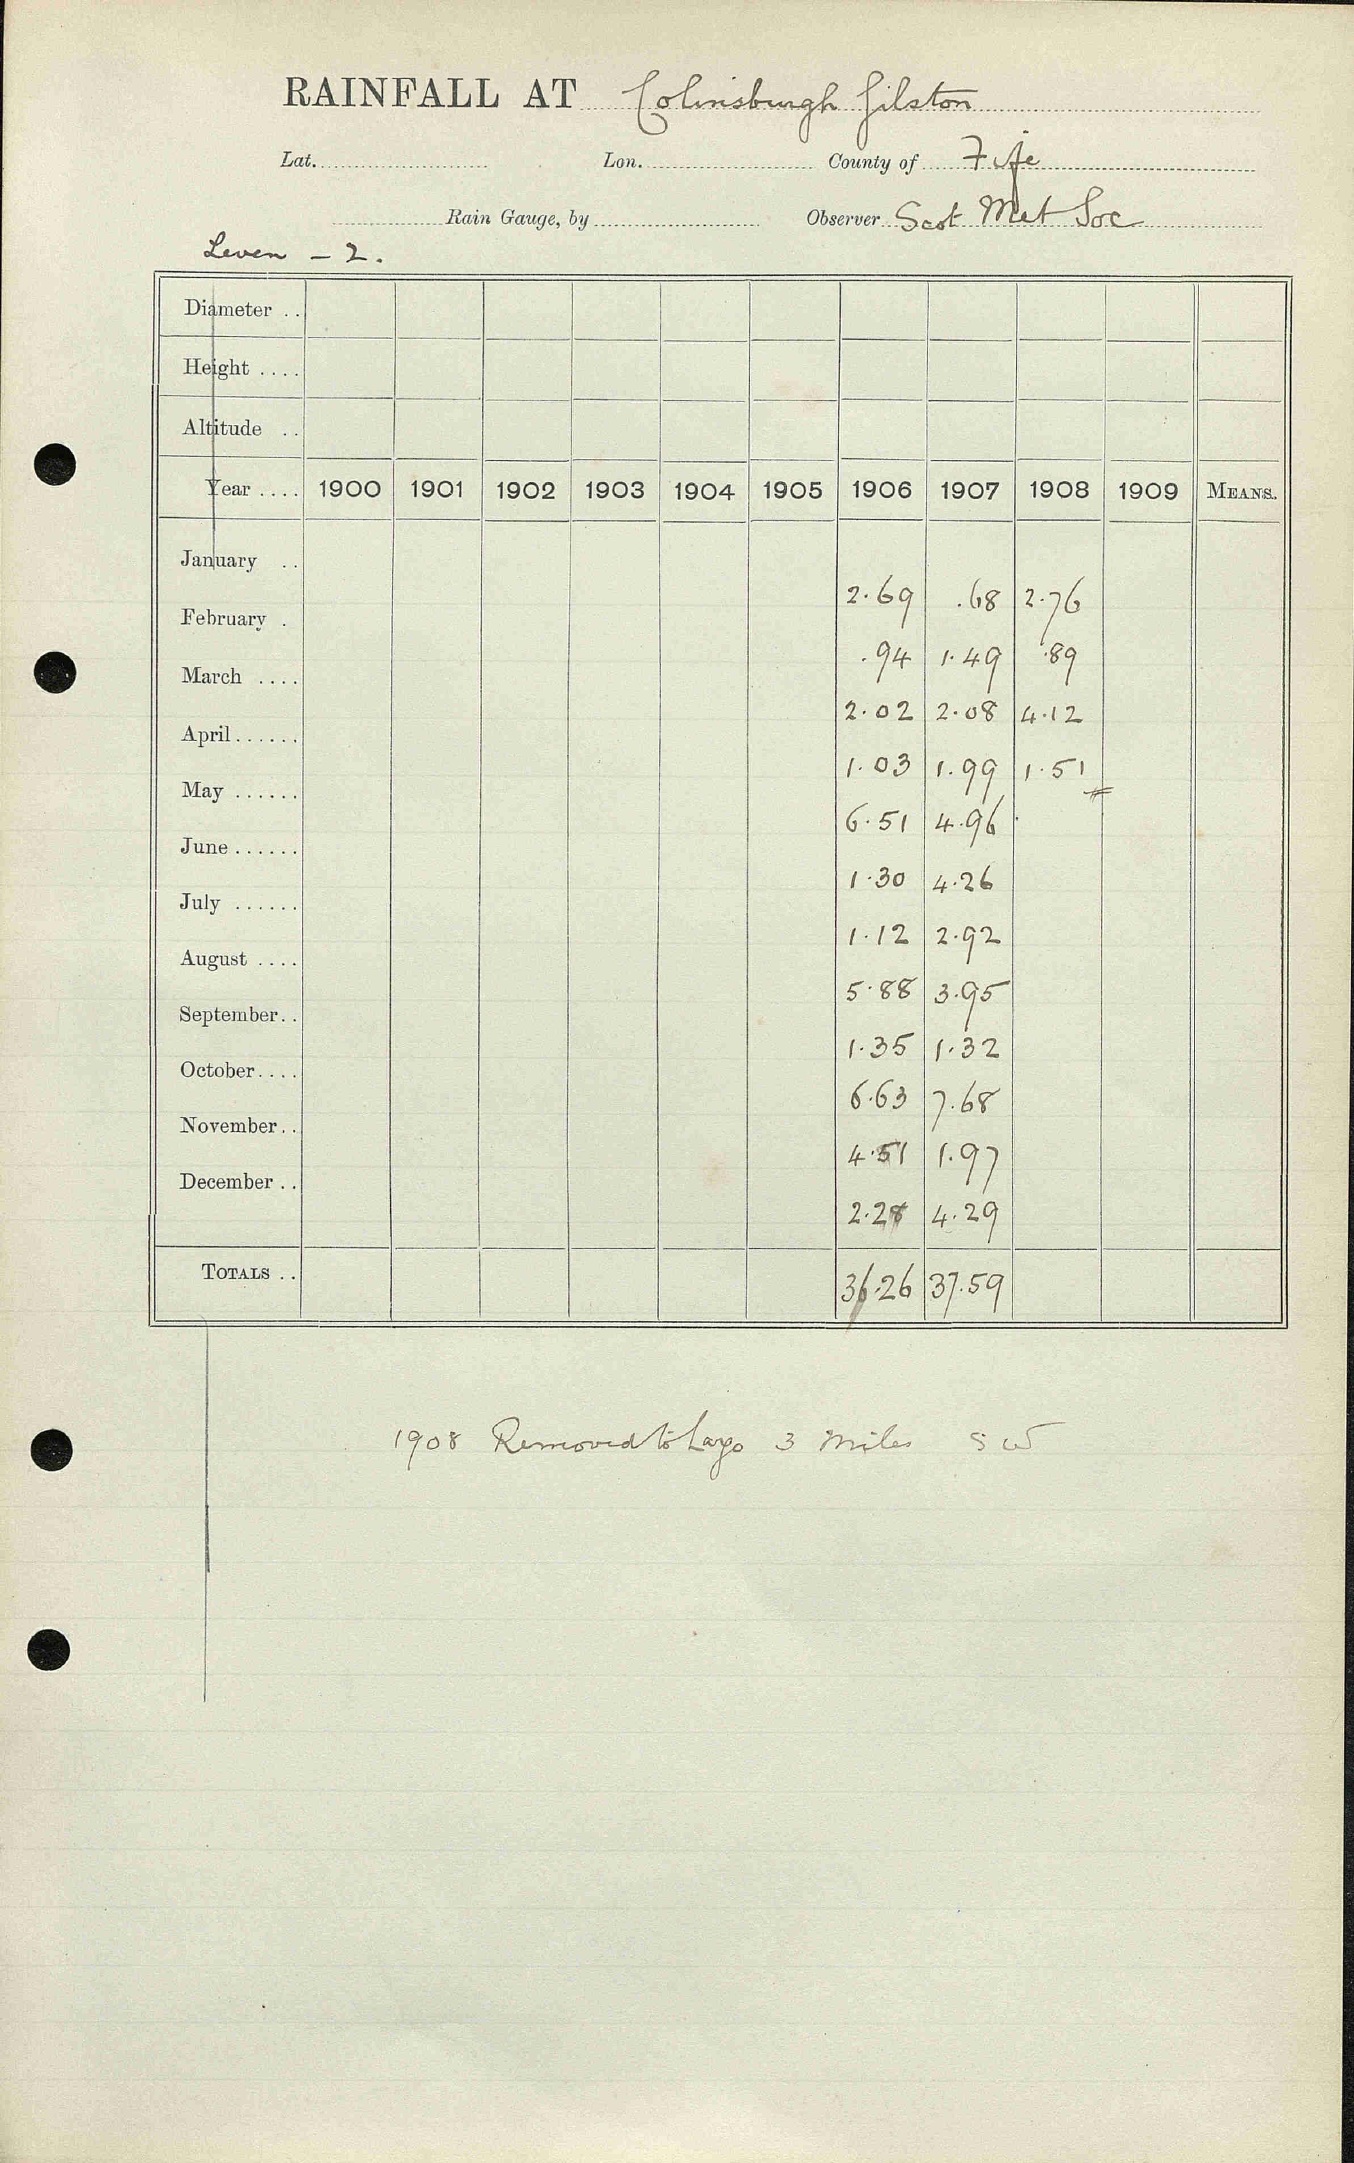 RAINFALL AT Colinsburgh Gilston
Lat. Lon. County of Fife
Rain Gauge, by Observer Scot Met Soc
Leven - 2.
Diameter ..
Height ....
Altitude ..
Year .... 1900 1901 1902 1903 1904 1905 1906 1907 1908 1909 MEANS.
January .. 2.69 .68 2.76
February . .94 1.49 .89
March .... 2.02 2.08 4.12
April...... 1.03 1.99 1.51
May ...... 6.51 4.96
June...... 1.30 4.26
July ...... 1.12 2.92
August .... 5.88 3.95
September.. 1.35 1.32
October.... 6.63 7.68
November.. 4.51 1.97
December .. 2.28 4.29
TOTALS .. 36.26 37.59
1908 Removed to Largo 3 Miles SW